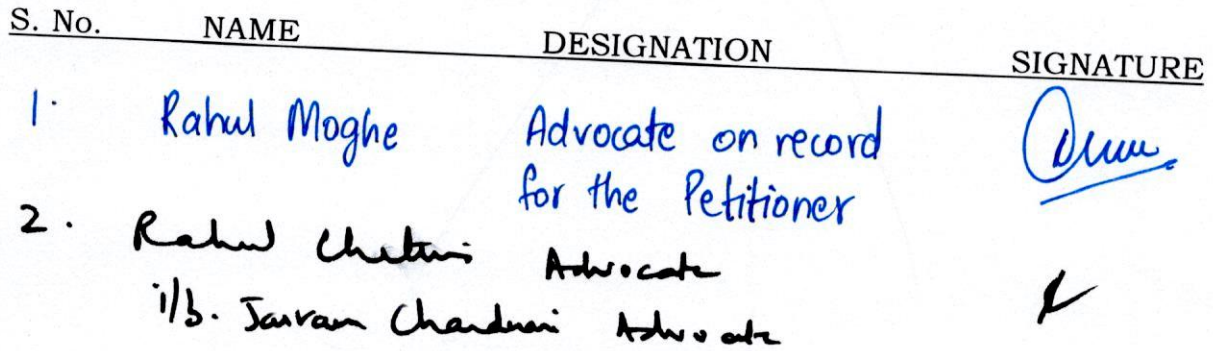 S. No. NAME DESIGNATION SIGNATURE
1. Rahul Moghe Advocate on record
for the Petitioner
2. Rahul Advocate
i/b. Jairam Chandnani Advocate